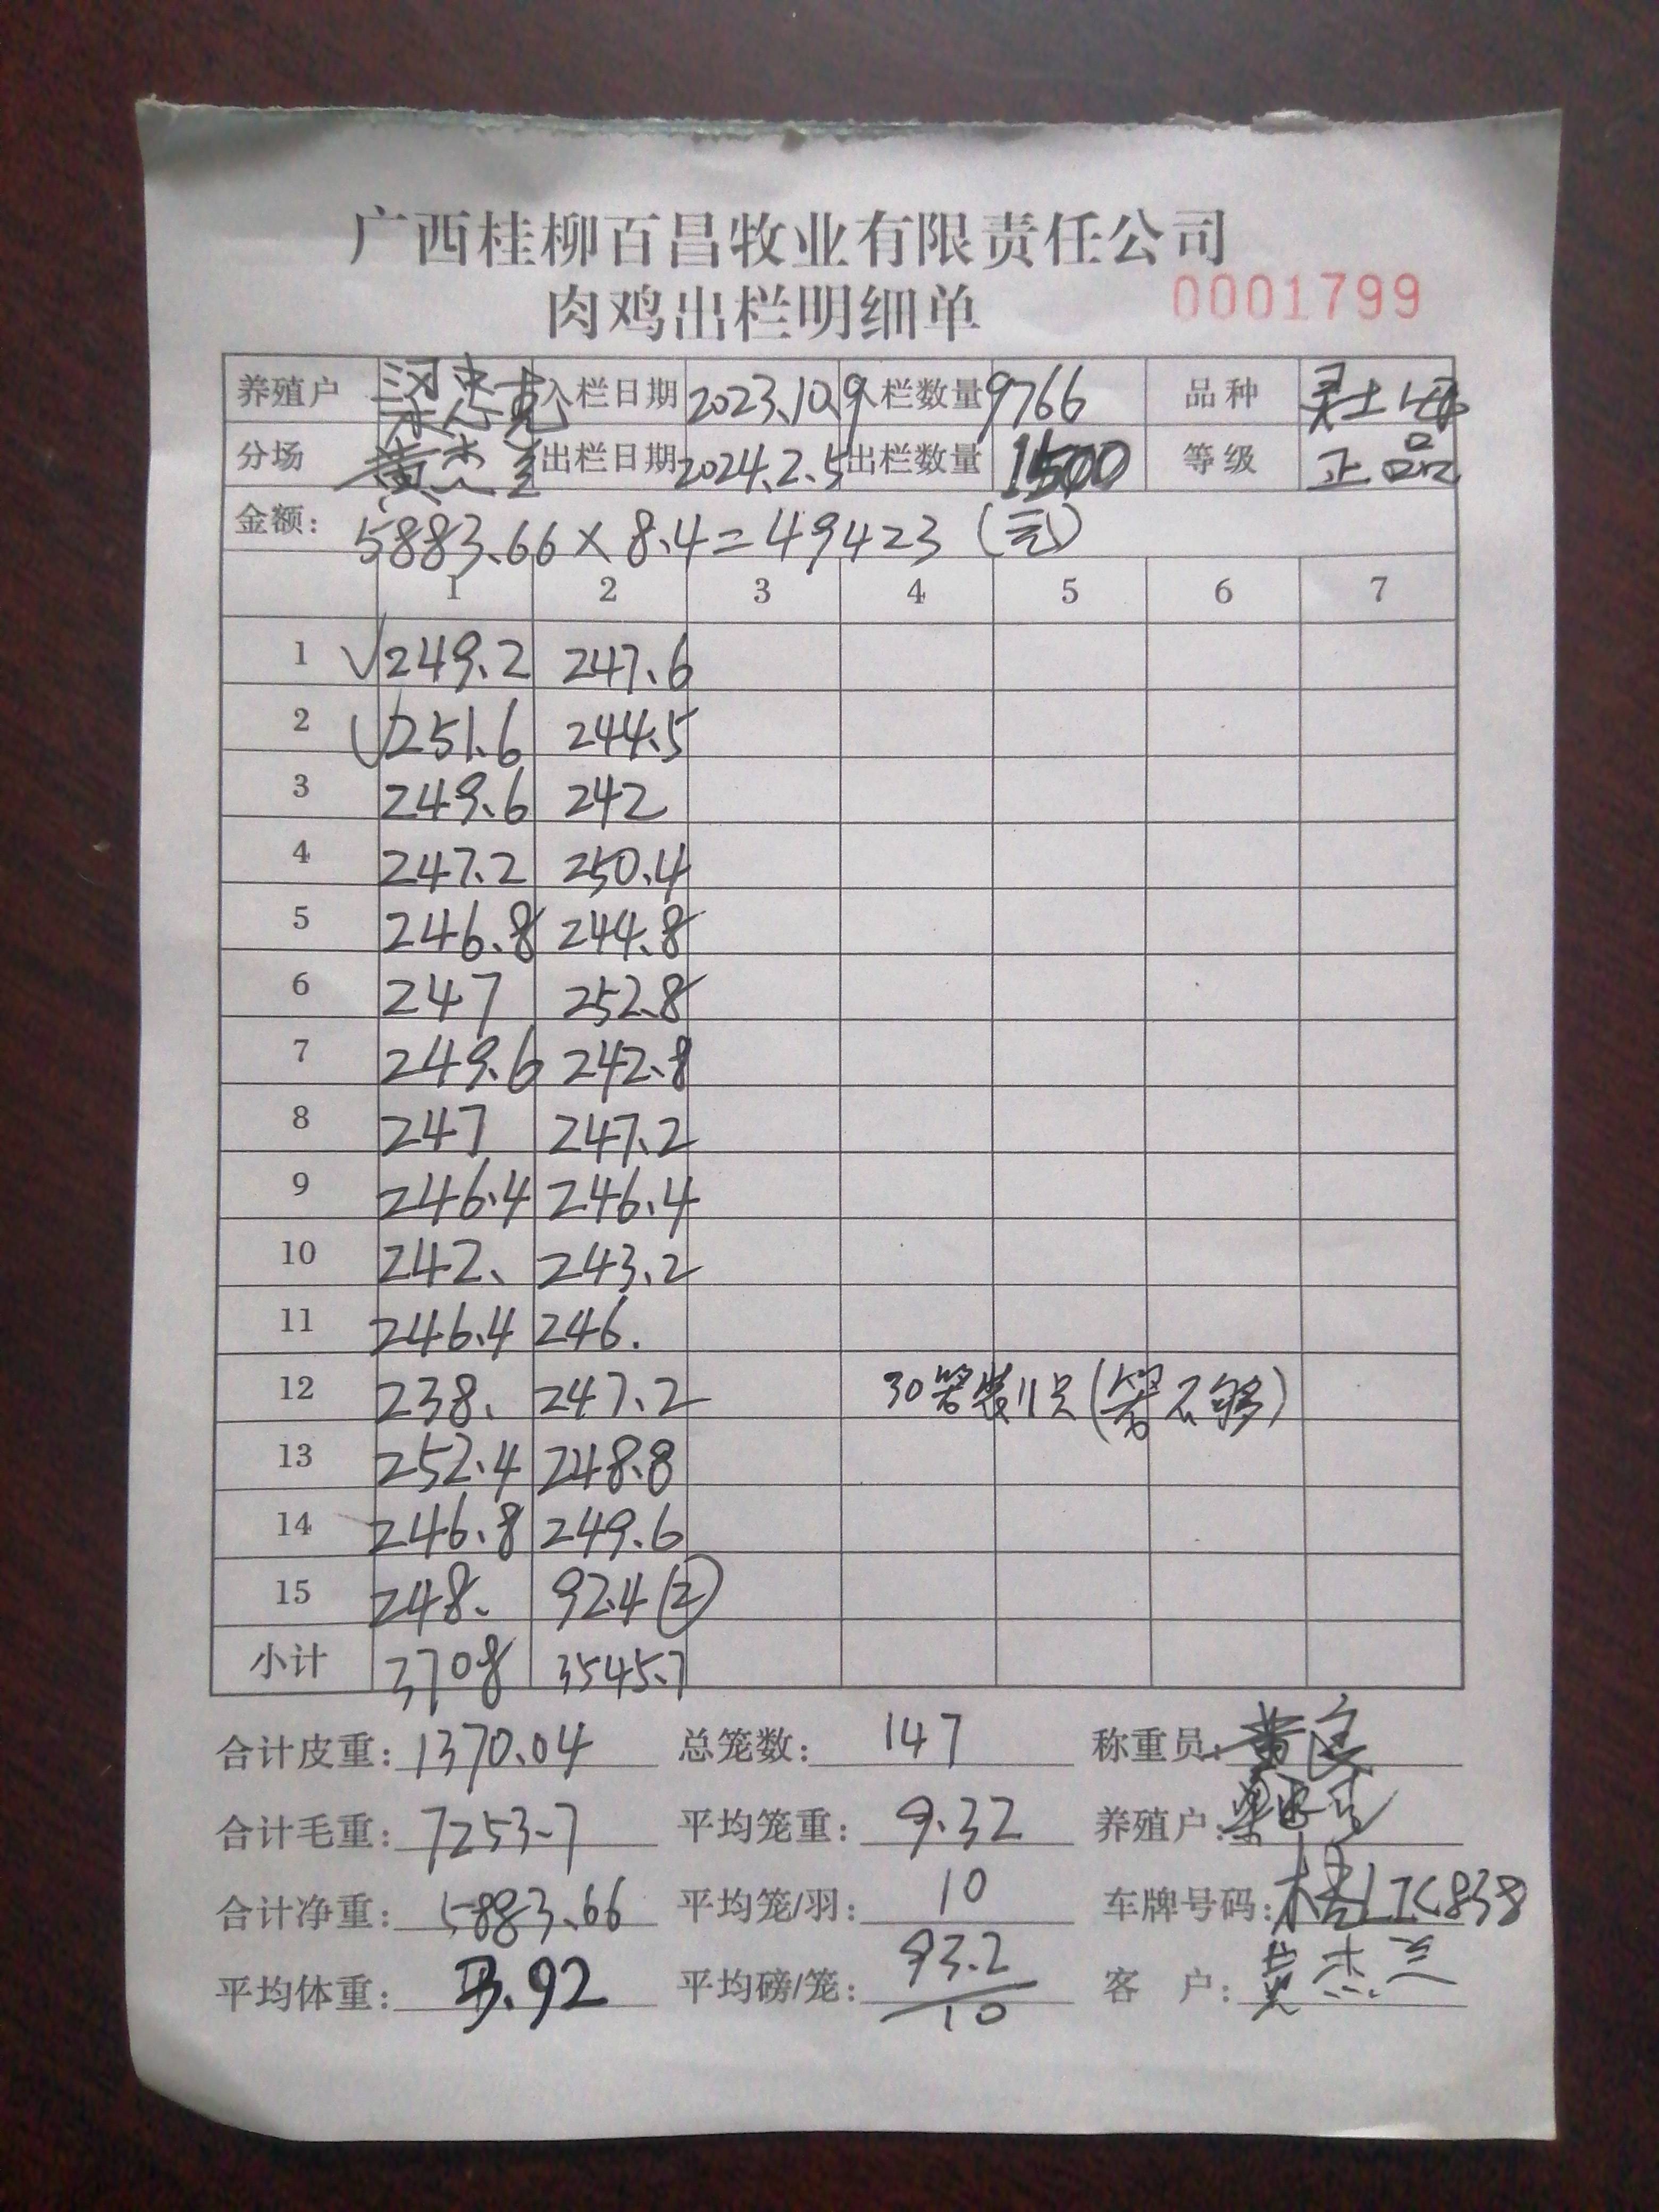 广西桂柳百昌牧业有限责任公司
肉鸡出栏明细单 0001799
养殖户 梁忠克 入栏日期 2023.10.9 入栏数量 9766 品种 灵土
分场 黄杰兰 出栏日期 2024.2.5 出栏数量 1500 等级 正品
金额: 5883.66×8.4=49423(元)
1 2 3 4 5 6 7
1 √249.2 247.6
2 √251.6 244.5
3 249.6 242
4 247.2 250.4
5 246.8 244.8
6 247 252.8
7 249.6 242.8
8 247 247.2
9 246.4 246.4
10 242. 243.2
11 246.4 246.
12 238. 247.2 30笼装11只(笼不够)
13 252.4 248.8
14 246.8 249.6
15 248. 92.4②
小计 3708 3545.7
合计皮重: 1370.04 总笼数: 147 称重员:
合计毛重: 7253.7 平均笼重: 9.32 养殖户:
合计净重: 5883.66 平均笼/羽: 10 车牌号码: 桂LJC838
平均体重: 3.92 平均磅/笼: 93.2/10 客户: 黄杰兰